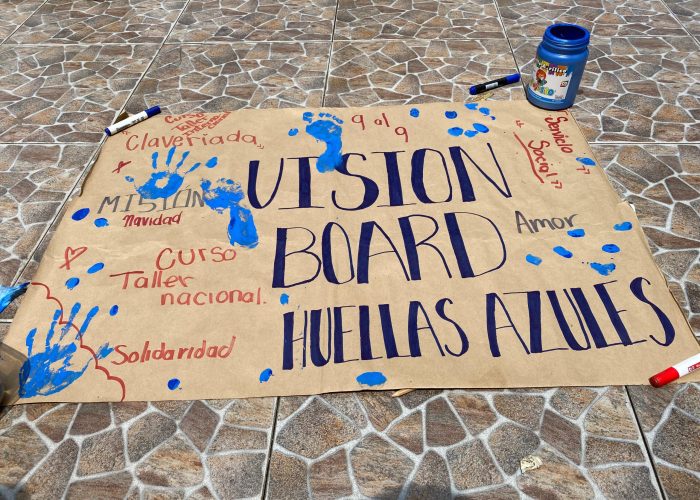 Curso
Claveriada,,
9 al
9
Servicio
Social,,
VISION
BOARD
HUELLAS AZULES
MISIÓN
Navidad
Amor
Curso
Taller
nacional.
Solidaridad